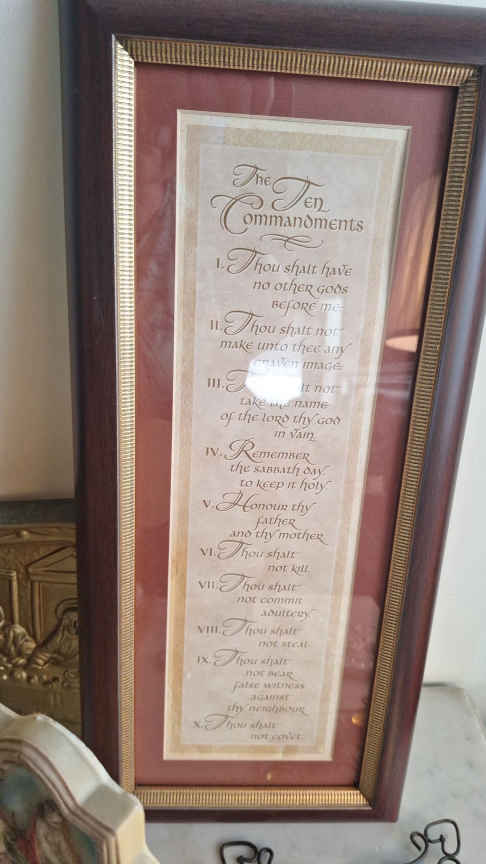 The Ten
Commandments
I. Thou shalt have
no other gods
before me.
II. Thou shalt not
make unto thee any
graven image.
III. Thou shalt not
take the name
of the lord thy god
in vain.
IV. Remember
the sabbath day.
to keep it holy.
V. Honour thy
father
and thy mother.
VI. Thou shalt
not kill.
VII. Thou shalt
not commit
adultery.
VIII. Thou shalt
not steal.
IX. Thou shalt
not bear
false witness
against
thy neighbour.
X. Thou shalt
not covet.